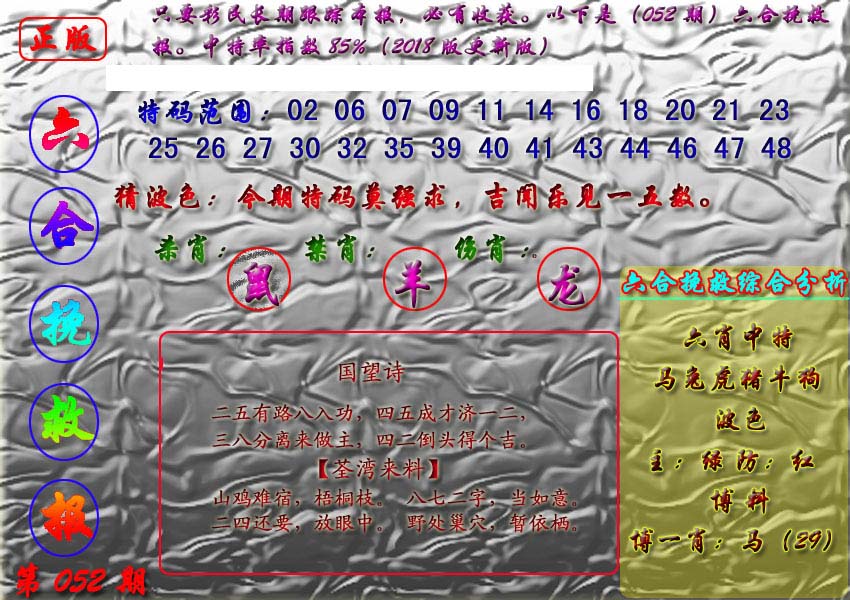 正版
只要彩民长期跟踪本报，必有收获。以下是（052期）六合挽救
报。中特率指数85%（2018版更新版）
六合挽救报
第052期
特码范围：02 06 07 09 11 14 16 18 20 21 23
25 26 27 30 32 35 39 40 41 43 44 46 47 48
猜波色：今期特码莫强求，吉闻乐见一五数。
杀肖：鼠 禁肖：羊 伤肖：龙
国望诗
二五有路八入功，四五成才济一二，
三八分离来做主，四二倒头得个吉。
【荃湾来料】
山鸡难宿，梧桐枝。 八七二字，当如意。
二四还要，放眼中。 野处巢穴，暂依栖。
六合挽救综合分析
六肖中特
马兔虎猪牛狗
波色
主：绿防：红
博料
博一肖：马（29）